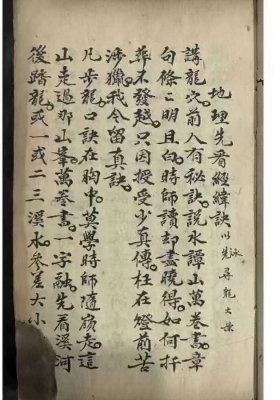 地理先看經緯訣以先尋龍大葉
泳
講龍穴前人有秘訣說水譚山萬卷書章
句條〻明且白時師讀却盡曉得如何扦
葬不發越只因授受少真傳枉在燈前苦
涉獵我今留真訣
凡步龍口訣在胸中莫學時師隨嶺走這
山走過那山峯萬卷書一字融先看溪河
後踏龍或一或二三溪水參差大小